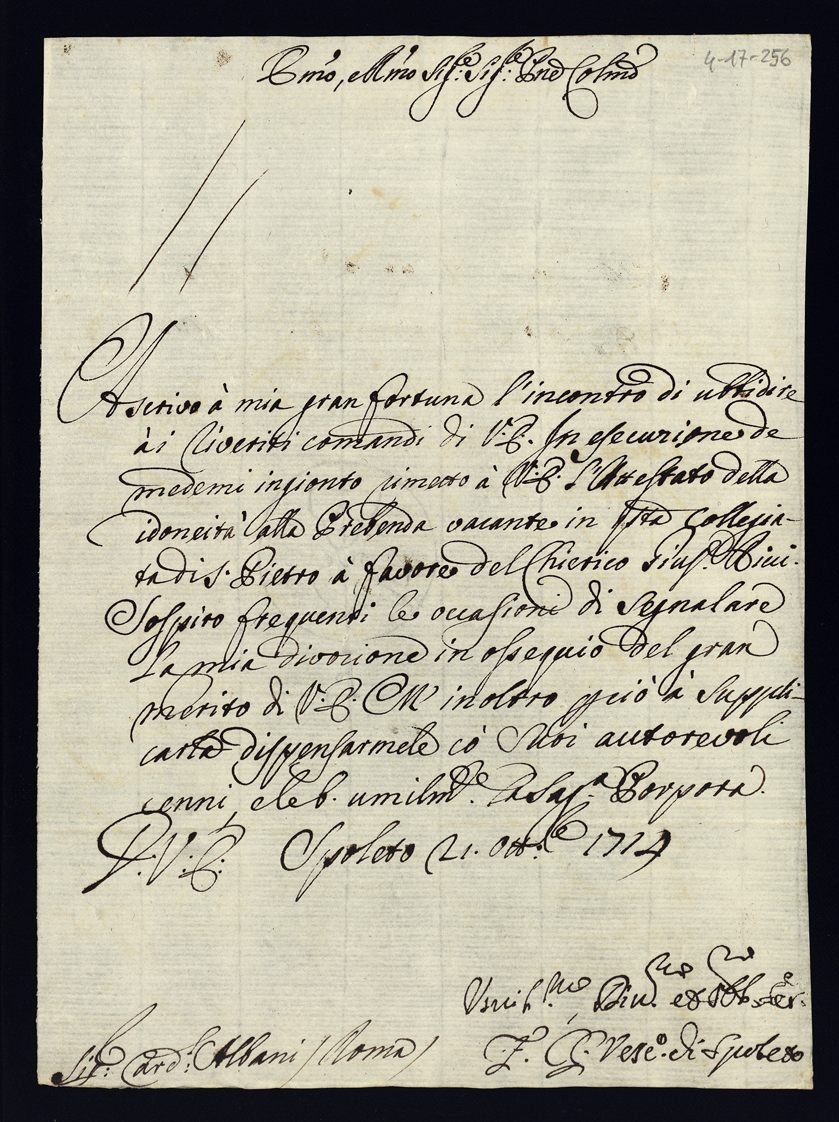 4-17-256
Emo, e Rmo Sig.re Sig.re Pne Colmo
Ascrivo à mia gran fortuna l'incontro di ubbidire
à i riveriti comandi di V.E. In esecuzione de
medemi ingionto rimetto à V.E. l'Attestato della
idoneità alla Prebenda vacante in qsta Collegia-
ta di S. Pietro à favore del Chierico Gius.e Ricci.
Sospiro frequenti le occasioni di segnalare
la mia divozione in ossequio del gran
merito di V.E. M' inoltro pciò à suppli-
carla dispensarmele cò suoi autorevoli
cenni, e le b. umilm.te la Sag.a Porpora.
D. V. E. Spoleto 21. Ott.re 1714
Umil.mo, Div.mo et Obb.mo Ser.e
Sig.r Card.l Albani / Roma /
Vesc.o di Spoleto